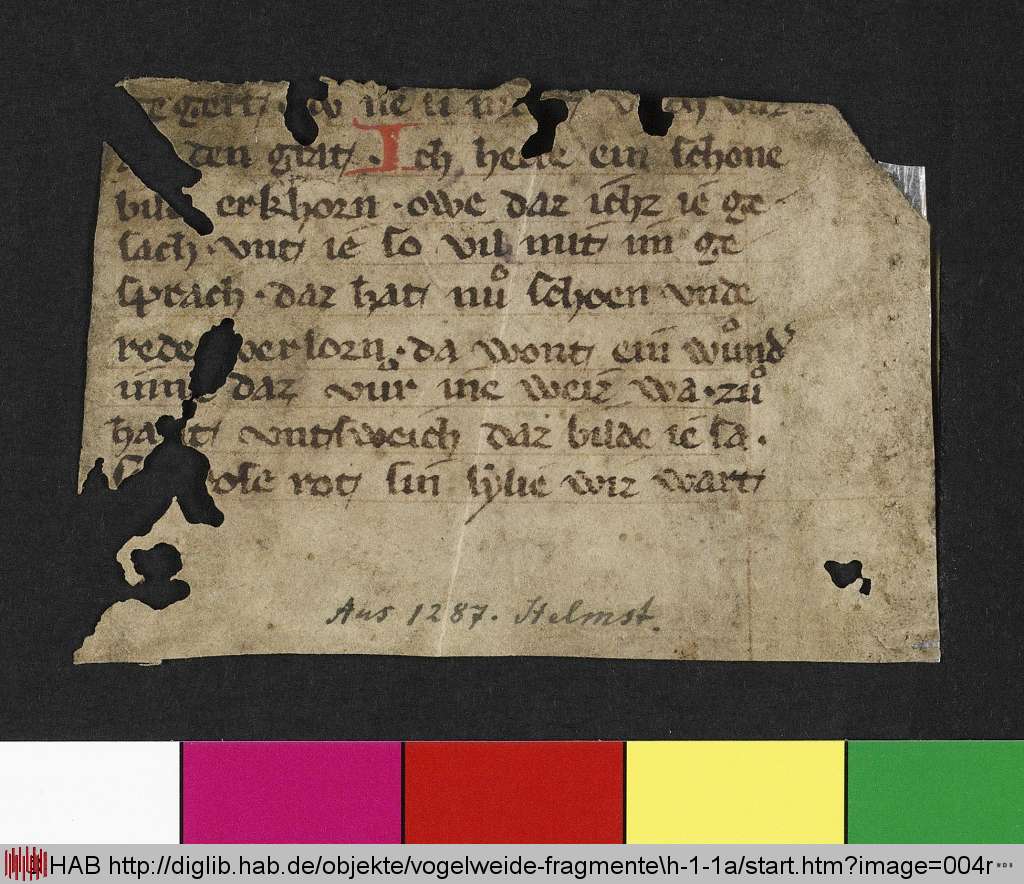 gert
den grat. Ich hette ein schone
bild erkhorn. owe daz ichz ie ge.
sach. vnt ie so vil mit im ge
sprach. daz hat nuͦ schoen vnde
rede verlorn. da wont ein wuͦnder
inne daz vuͦr ine weiz wa. zuͦ
hant vntsweich daz bilde ie sa.
rose rot sin lylie wiz wart
Aus 1287. Helmst.
HAB http://diglib.hab.de/objekte/vogelweide-fragmente\h-1-1a/start.htm?image=004r